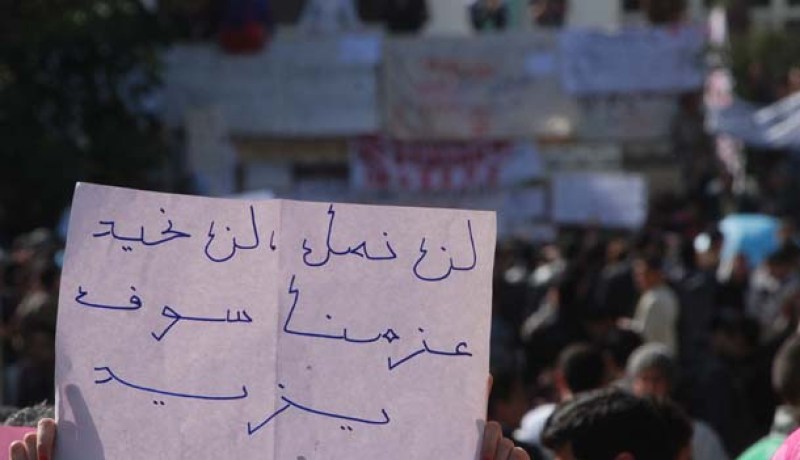 لن نمل، لن نحيد
عزمنا سوف
يزيد